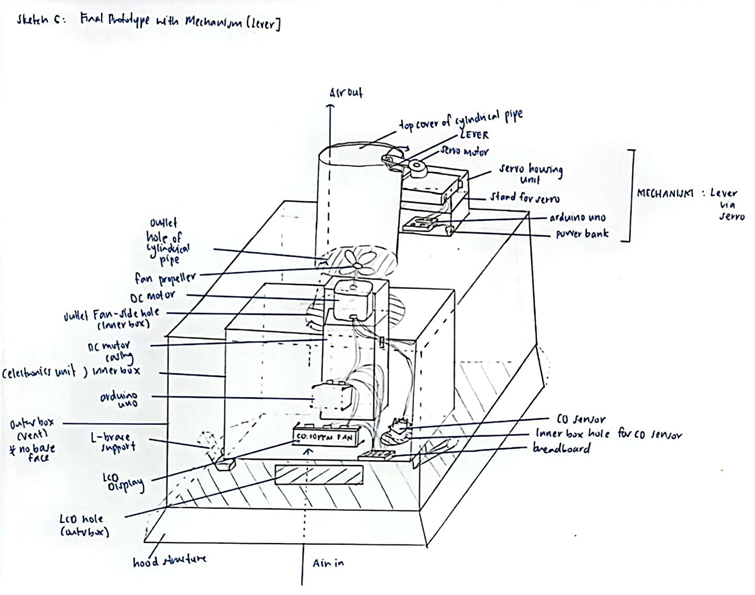 Sketch C: Final Prototype with Mechanism [Lever]
Air out
top cover of cylindrical pipe
LEVER
servo motor
servo housing
unit
stand for servo
arduino uno
power bank
MECHANISM : Lever
via
servo
outlet
hole of
cylindrical
pipe
fan propeller
DC motor
outlet Fan-side hole
(inner box)
DC motor
casing
(electronics unit) inner box
arduino
uno
outer box
(vent)
* no base
face
L-brace
support
LCD
Display
LCD hole
(outer box)
hood structure
CO: 10PPM FAN
CO sensor
Inner box hole for CO sensor
breadboard
Air in